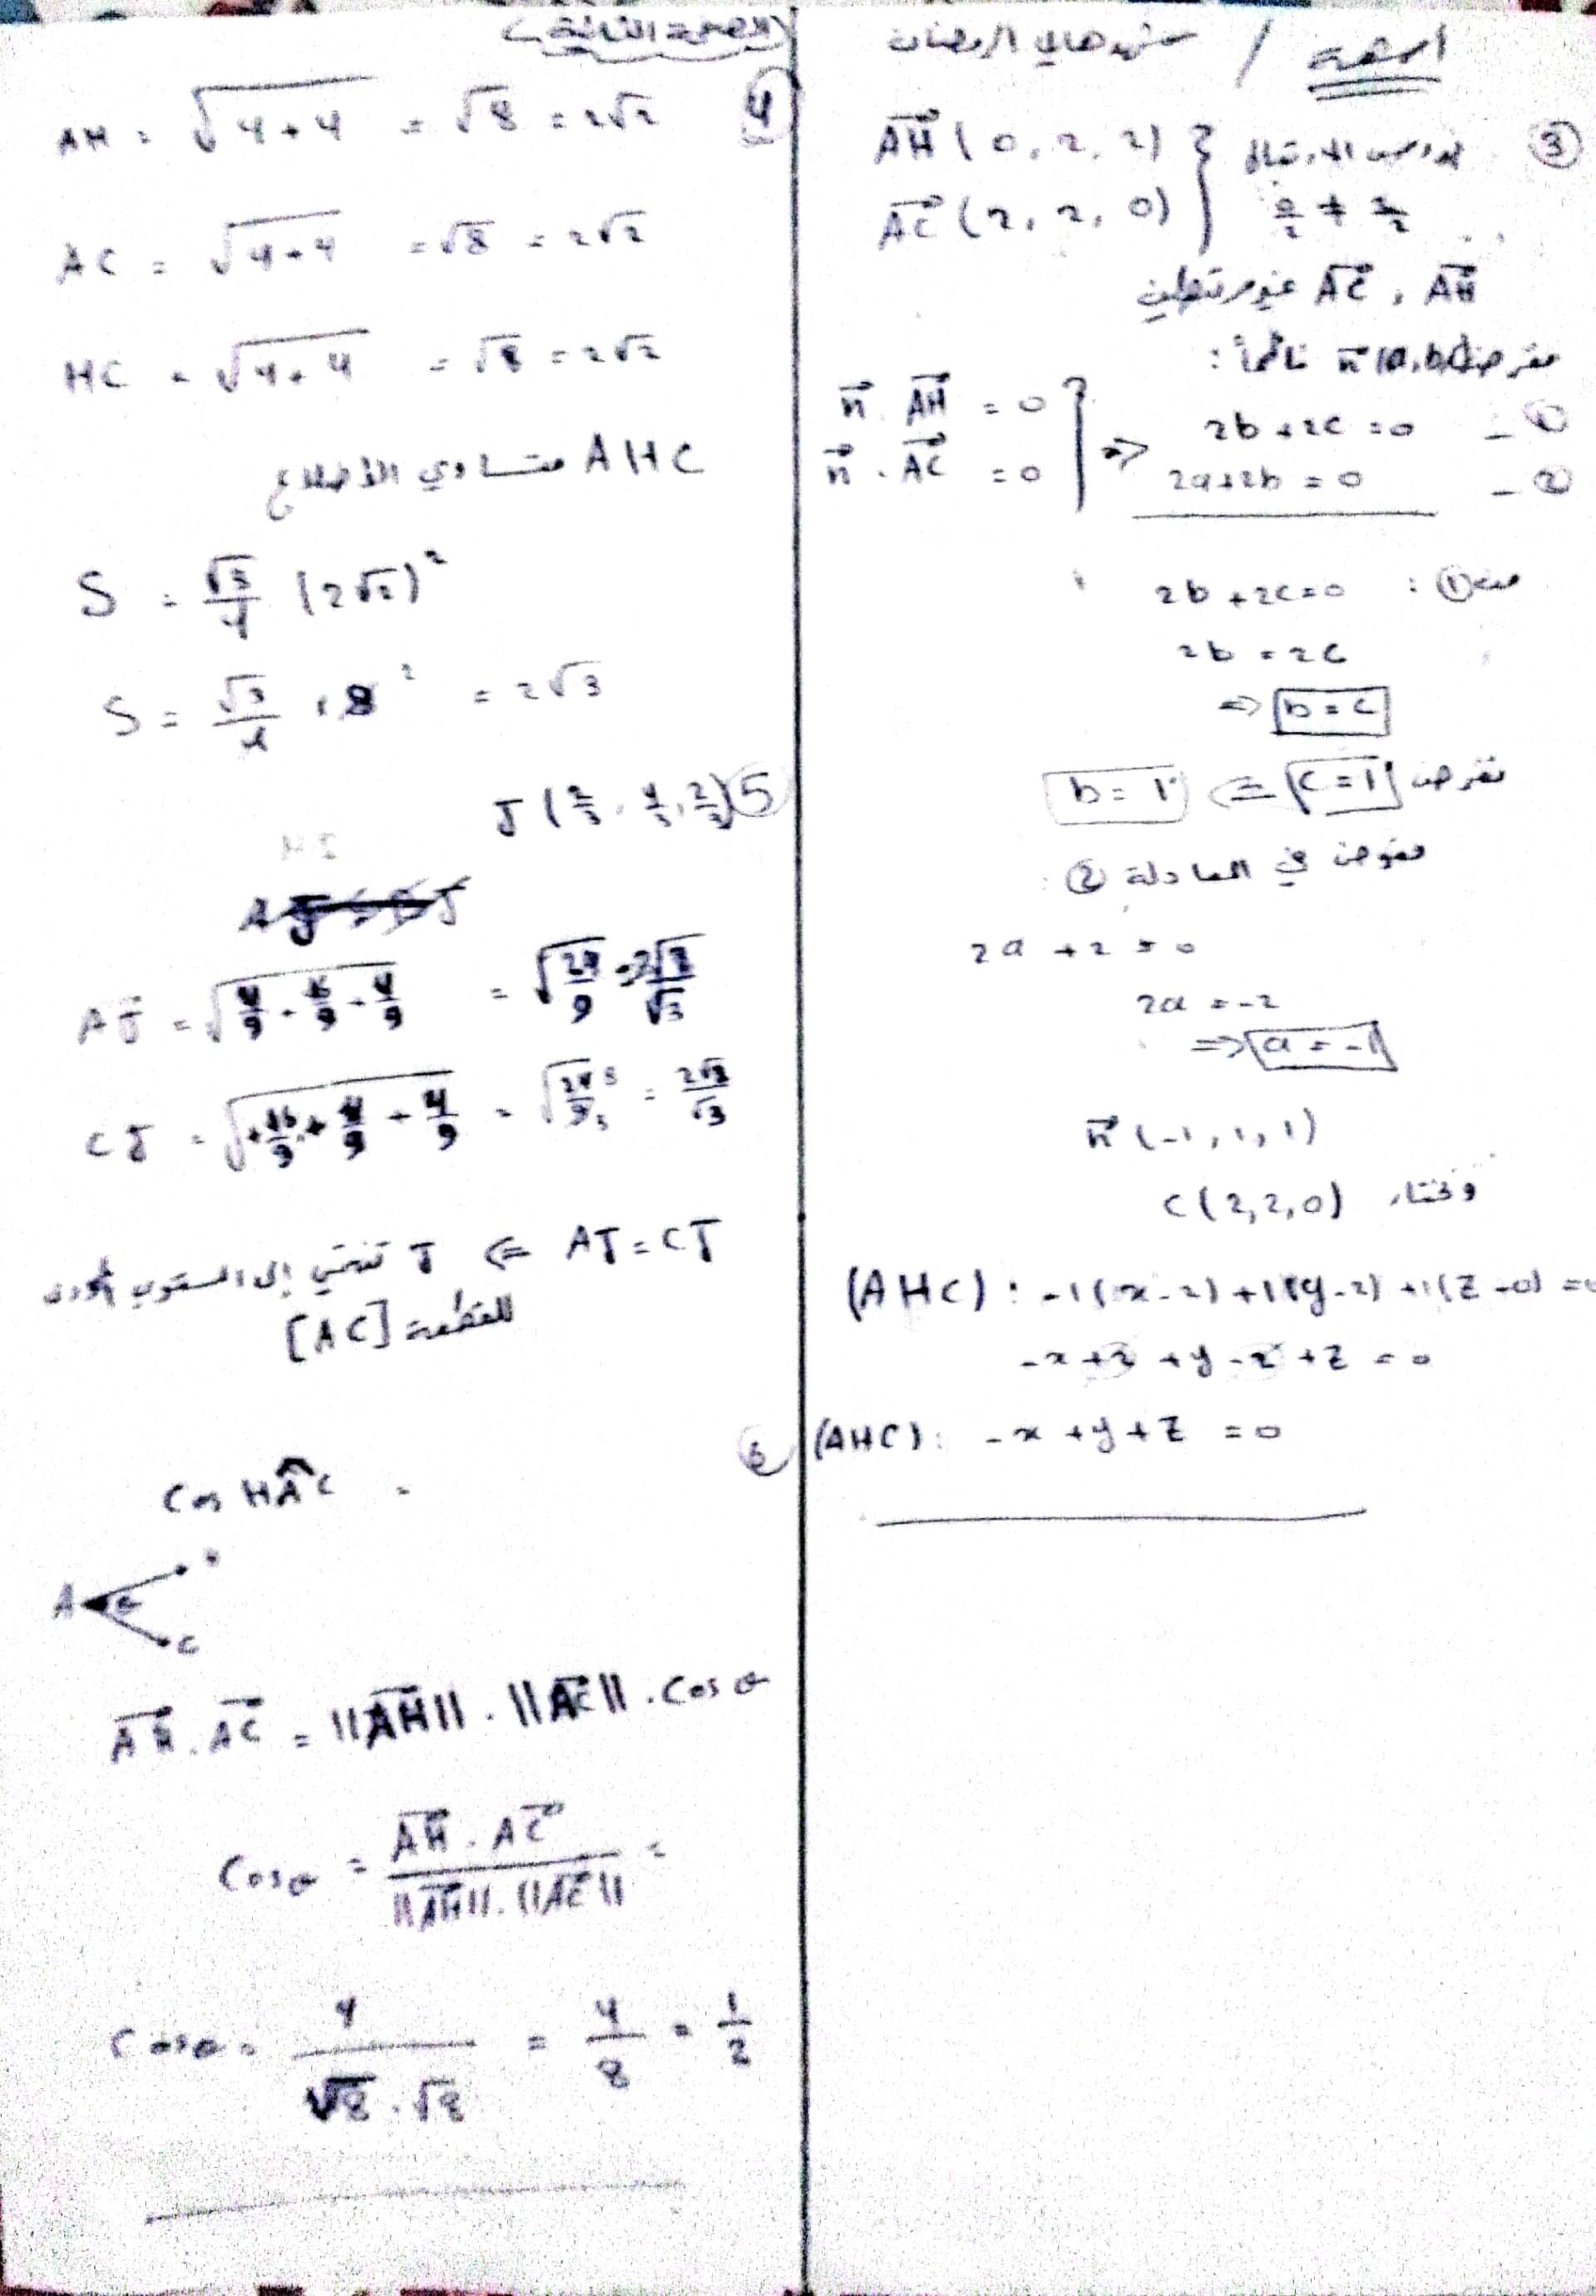 الصفحة الثانية
③
AH (0, 2, 2)
AC (2, 2, 0)
0/2 ≠ 2/2
AH , AC غير مرتبطين
نفرض n(a,b,c) ناظماً :
n . AH = 0
n . AC = 0
⇒ 2b + 2c = 0 - ①
2a + 2b = 0 - ②
من ① : 2b + 2c = 0
2b = 2c
⇒ b = c
نفرض c = 1 ⇐ b = 1
نعوض في المعادلة ② :
2a + 2 = 0
2a = -2
⇒ a = -1
n (-1, 1, 1)
ونختار C (2, 2, 0)
(AHC) : -1(x-2) + 1(y-2) + 1(z-0) = 0
-x + 2 + y - 2 + z = 0
(AHC) : -x + y + z = 0
④
AH = √(4+4) = √8 = 2√2
AC = √(4+4) = √8 = 2√2
HC = √(4+4) = √8 = 2√2
AHC متساوي الأضلاع
S = √3/4 (2√2)²
S = √3/4 . 8 ² = 2√3
⑤ J (2/3 , 4/3 , 2/3)
AJ = √(4/9 + 16/9 + 4/9) = √(24/9) = 2√2/√3
CJ = √(16/9 + 4/9 + 4/9) = √(24/9) = 2√2/√3
AJ = CJ ⇐ J تنتمي إلى المستوي المحوري
للقطعة [AC]
⑥
Cos HAC =
A θ H
C
AH . AC = ||AH|| . ||AC|| . Cos θ
Cos θ = AH . AC / ||AH|| . ||AC|| =
Cos θ = 4/√8 . √8 = 4/8 = 1/2